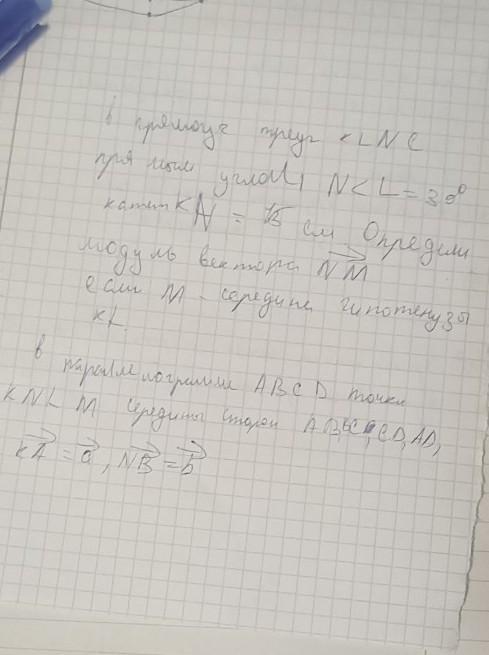 в прямоуг треуг KLN С
прямым углом N < L = 30°
катет KN = √3 см Определи
модуль вектора NM
если M - середина гипотенузы
KL.
в параллелограмме ABCD точки
K N L M середины сторон AB, BC, CD, AD,
KA = a, NB = b